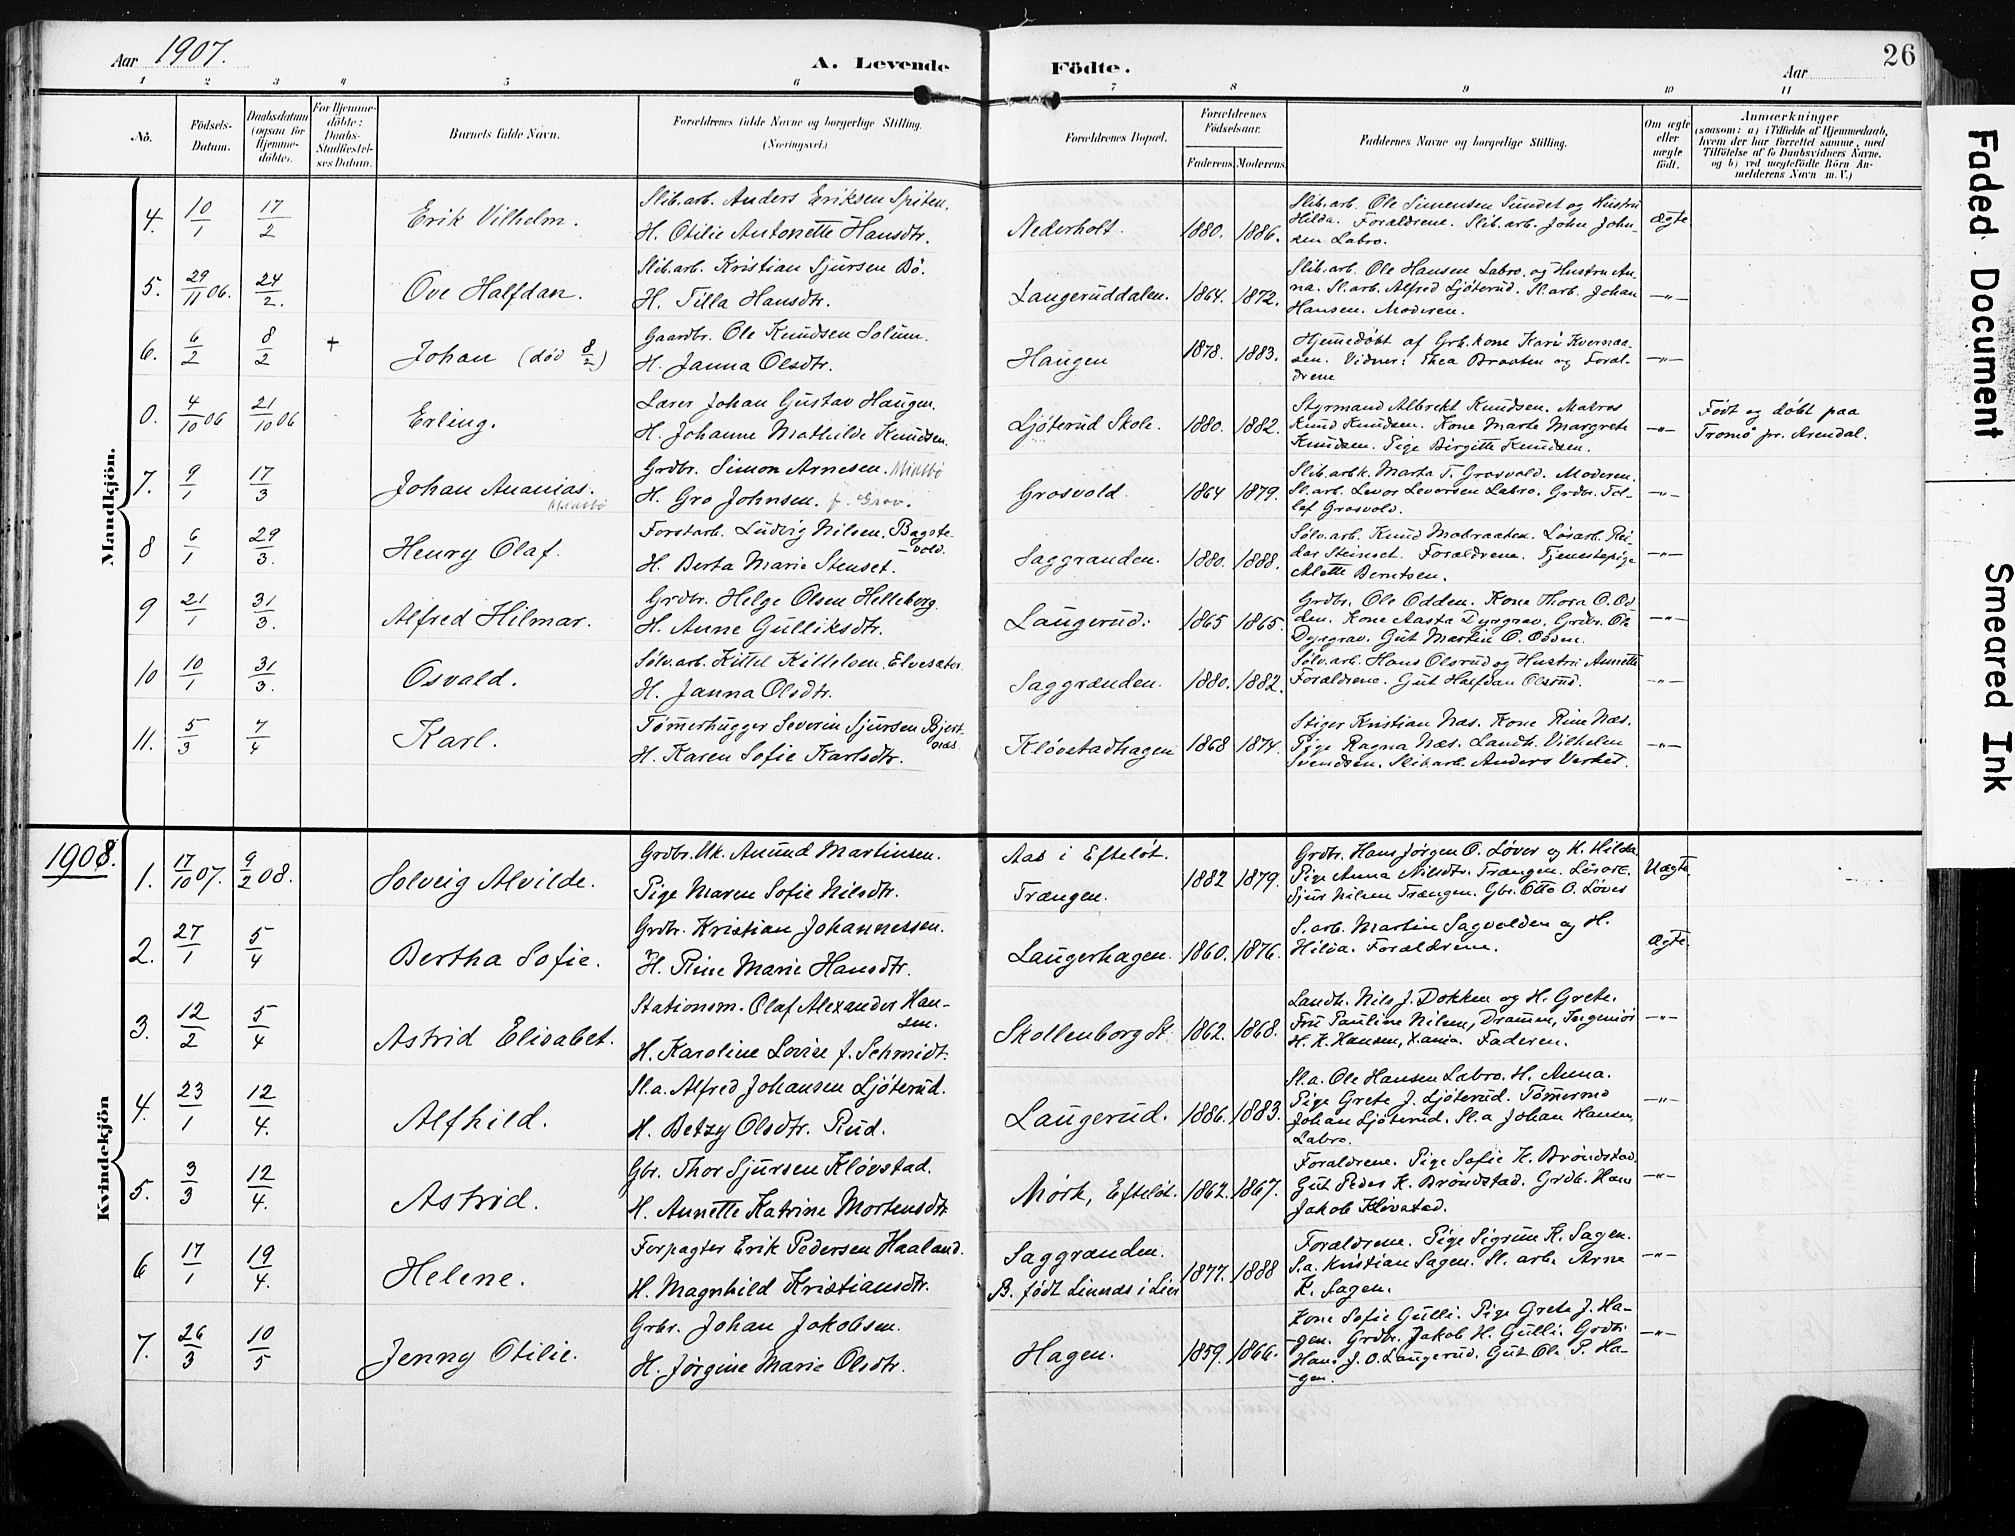 Aar 1907.
A. Levende Födte.
Aar
26
1 2 3 4 5 6 7 8 9 10 11
No.
Födsels-Datum.
Daabsdatum (ogsaa for Hjemmedöbte).
For Hjemmedöbte: Daabs-Stadfæstelses Datum.
Barnets fulde Navn.
Forældrenes fulde Navne og borgerlige Stilling. (Næringsvei.)
Forældrenes Bopæl.
Forældrenes Födselsaar.
Faderens. Moderens.
Faddernes Navne og borgerlige Stilling.
Om ægte eller uægte födt.
Anmærkninger
(saasom: a) i Tilfælde af Hjemmedaab, hvem der har forrettet samme, med Tilföielse af to Daabsvidners Navne, og b) ved uægtefödte Börn Anmelderens Navn m. V.)
Mandkjön.
4. 10/1 17/2 Erik Vilhelm.
Slib.arb. Anders Eriksen Spiten.
H. Otilie Antonette Hansdtr.
Nederholt. 1880. 1886.
Slib.arb. Ole Simensen Sundet og Hustru
Hilda. Forældrene. Slib.arb. John John-
sen Labro.
Ægte
5. 29/11 06. 24/2. Ove Halfdan.
Slib.arb. Kristian Sjursen Bö.
H. Tilla Hansdtr.
Laugeruddalen. 1864. 1872.
Slib.arb. Ole Hansen Labro. og Hustru An-
na. Sl.arb. Alfred Ljöterud. Sl.arb. Johan
Hansen. Moderen.
—"—
6. 6/2 8/2 + Johan (död 8/2)
Gaardbr. Ole Knudsen Solum.
H. Janna Olsdtr.
Haugen 1878. 1883.
Hjemmedöbt af Grb.kone Kari Kvernaa-
sen. Vidner: Thea Braaten og Foræl-
drene
—"—
0. 4/10 06 21/10 06 Erling.
Lærer Johan Gustav Haugen.
H. Johanne Mathilde Knudsen.
Ljöterud Skole. 1880. 1882.
Styrmand Albrekt Knudsen. Matros
Knud Knudsen. Kone Marte Margrete
Knudsen. Pige Birgitte Knudsen.
—"—
Födt og döbt paa
Tromö pr. Arendal.
7. 9/1 17/3 Johan Ananias.
Grdbr. Simon Arnesen.
H. Gro Johnsen.
Grosvold. 1864 1879.
Slib.arbk. Marta T. Grosvold. Moderen.
Sl.arb. Levor Levorsen Labro. Grdbr. Tol-
lef Grosvold.
—"—
8 6/1 29/3. Henry Olaf.
Forstarb. Ludvig Nilsen, Bagste-
vold.
H. Berta Marie Stenset.
Saggranden. 1880. 1888.
Sölv.arb. Knud Mobraaten. Lösarb. Rei-
dar Steinset. Forældrene. Tjenestepige
Alette Berntsen.
—"—
9 21/1 31/3. Alfred Hilmar.
Grdbr. Helge Olsen Helleberg.
H. Anne Gulliksdtr.
Laugerud. 1865 1865.
Grdbr. Ole Odden. Kone Thora O. Od-
den. Kone Aasta Dyrgrav. Grdbr. Ole
Dyrgrav. Gut Martin O. Odden.
—"—
10 10/1 31/3. Osvald.
Sölv.arb. Kittel Kittelsen, Elvesæter.
H. Janna Olsdtr.
Saggrænden. 1880. 1882.
Sölv.arb. Hans Olsrud og Hustru Annette
Forældrene. Gut Halfdan Olsrud.
—"—
11. 5/3 7/4 Karl.
Tömmerhugger Severin Sjursen Bjert-
næs
H. Karen Sofie Karlsdtr.
Klövstadhagen 1868 1874.
Stiger Kristian Næs. Kone Rine Næs.
Pige Ragna Næs. Landh. Vilhelm
Svendsen. Slib.arb. Anders Verket.
—"—
1908.
Kvindekjön
1. 17/10 07. 9/2 08. Solveig Alvilde.
Grdbr. Uk. Anund Martinsen.
Pige Maren Sofie Nilsdtr.
Aas i Efteløt.
Trængen.
1882 1879.
Grdbr. Hans Jörgen O. Löver og H. Hilda
Pige Anna Nilsdtr. Trængen. Lösarb.
Sjur Nilsen Trængen. Gbr. Otto O. Löver
Uægte
2. 27/1 5/4 Bertha Sofie.
Grdbr. Kristian Johannessen.
H. Rine Marie Hansdtr.
Laugerhagen. 1860. 1876.
S.arb. Martin Sagvolden og H.
Hilda. Forældrene.
Ægte.
3. 12/2 5/4 Astrid Elisabet.
Stationsm. Olaf Alexander Han-
sen.
H. Karoline Lovise f. Schmidt.
Skollenborg St. 1862. 1868.
Landh. Nils J. Dokken og H. Grete.
Fru Pauline Nilsen, Drammen, Ingeniör
H. K. Hansen, Xania. Faderen.
—"—
4. 23/1 12/4. Alfhild.
Sl.a. Alfred Johansen Ljöterud.
H. Betzy Olsdtr. Rud.
Laugerud. 1886. 1883.
Sl.a. Ole Hansen Labro. H. Anna.
Pige Grete J. Ljöterud. Tömmermd
Johan Ljöterud. Sl.a Johan Hansen,
Labro.
—"—
5. 3/3 12/4. Astrid.
Gbr. Thor Sjursen Klövstad.
H. Annette Katrine Mortensdtr.
Mörk, Efteløt. 1862. 1867.
Forældrene. Pige Sofie H. Bröndstad.
Gut Peder K. Bröndstad. Grdb. Hans
Jakob Klövstad.
—"—
6 17/1 19/4. Helene.
Forpagter Erik Pedersen Haaland.
H. Magnhild Kristiansdtr.
Saggranden.
B. født Linnæs i Lier
1877. 1888
Forældrene. Pige Sigrun K. Sagen.
S.a. Kristian Sagen. Sl. arb. Arne
K. Sagen.
—"—
7. 26/3 10/5 Jenny Otilie.
Grbr. Johan Jakobsen.
H. Jörgine Marie Olsdtr.
Hagen. 1859. 1866.
Kone Sofie Gulli. Pige Grete J. Ha-
gen. Grdbr. Jakob H. Gulli. Grdbr.
Hans J. O. Laugerud. Gut Ole P. Ha-
gen.
—"—
Faded Document
Smeared Ink